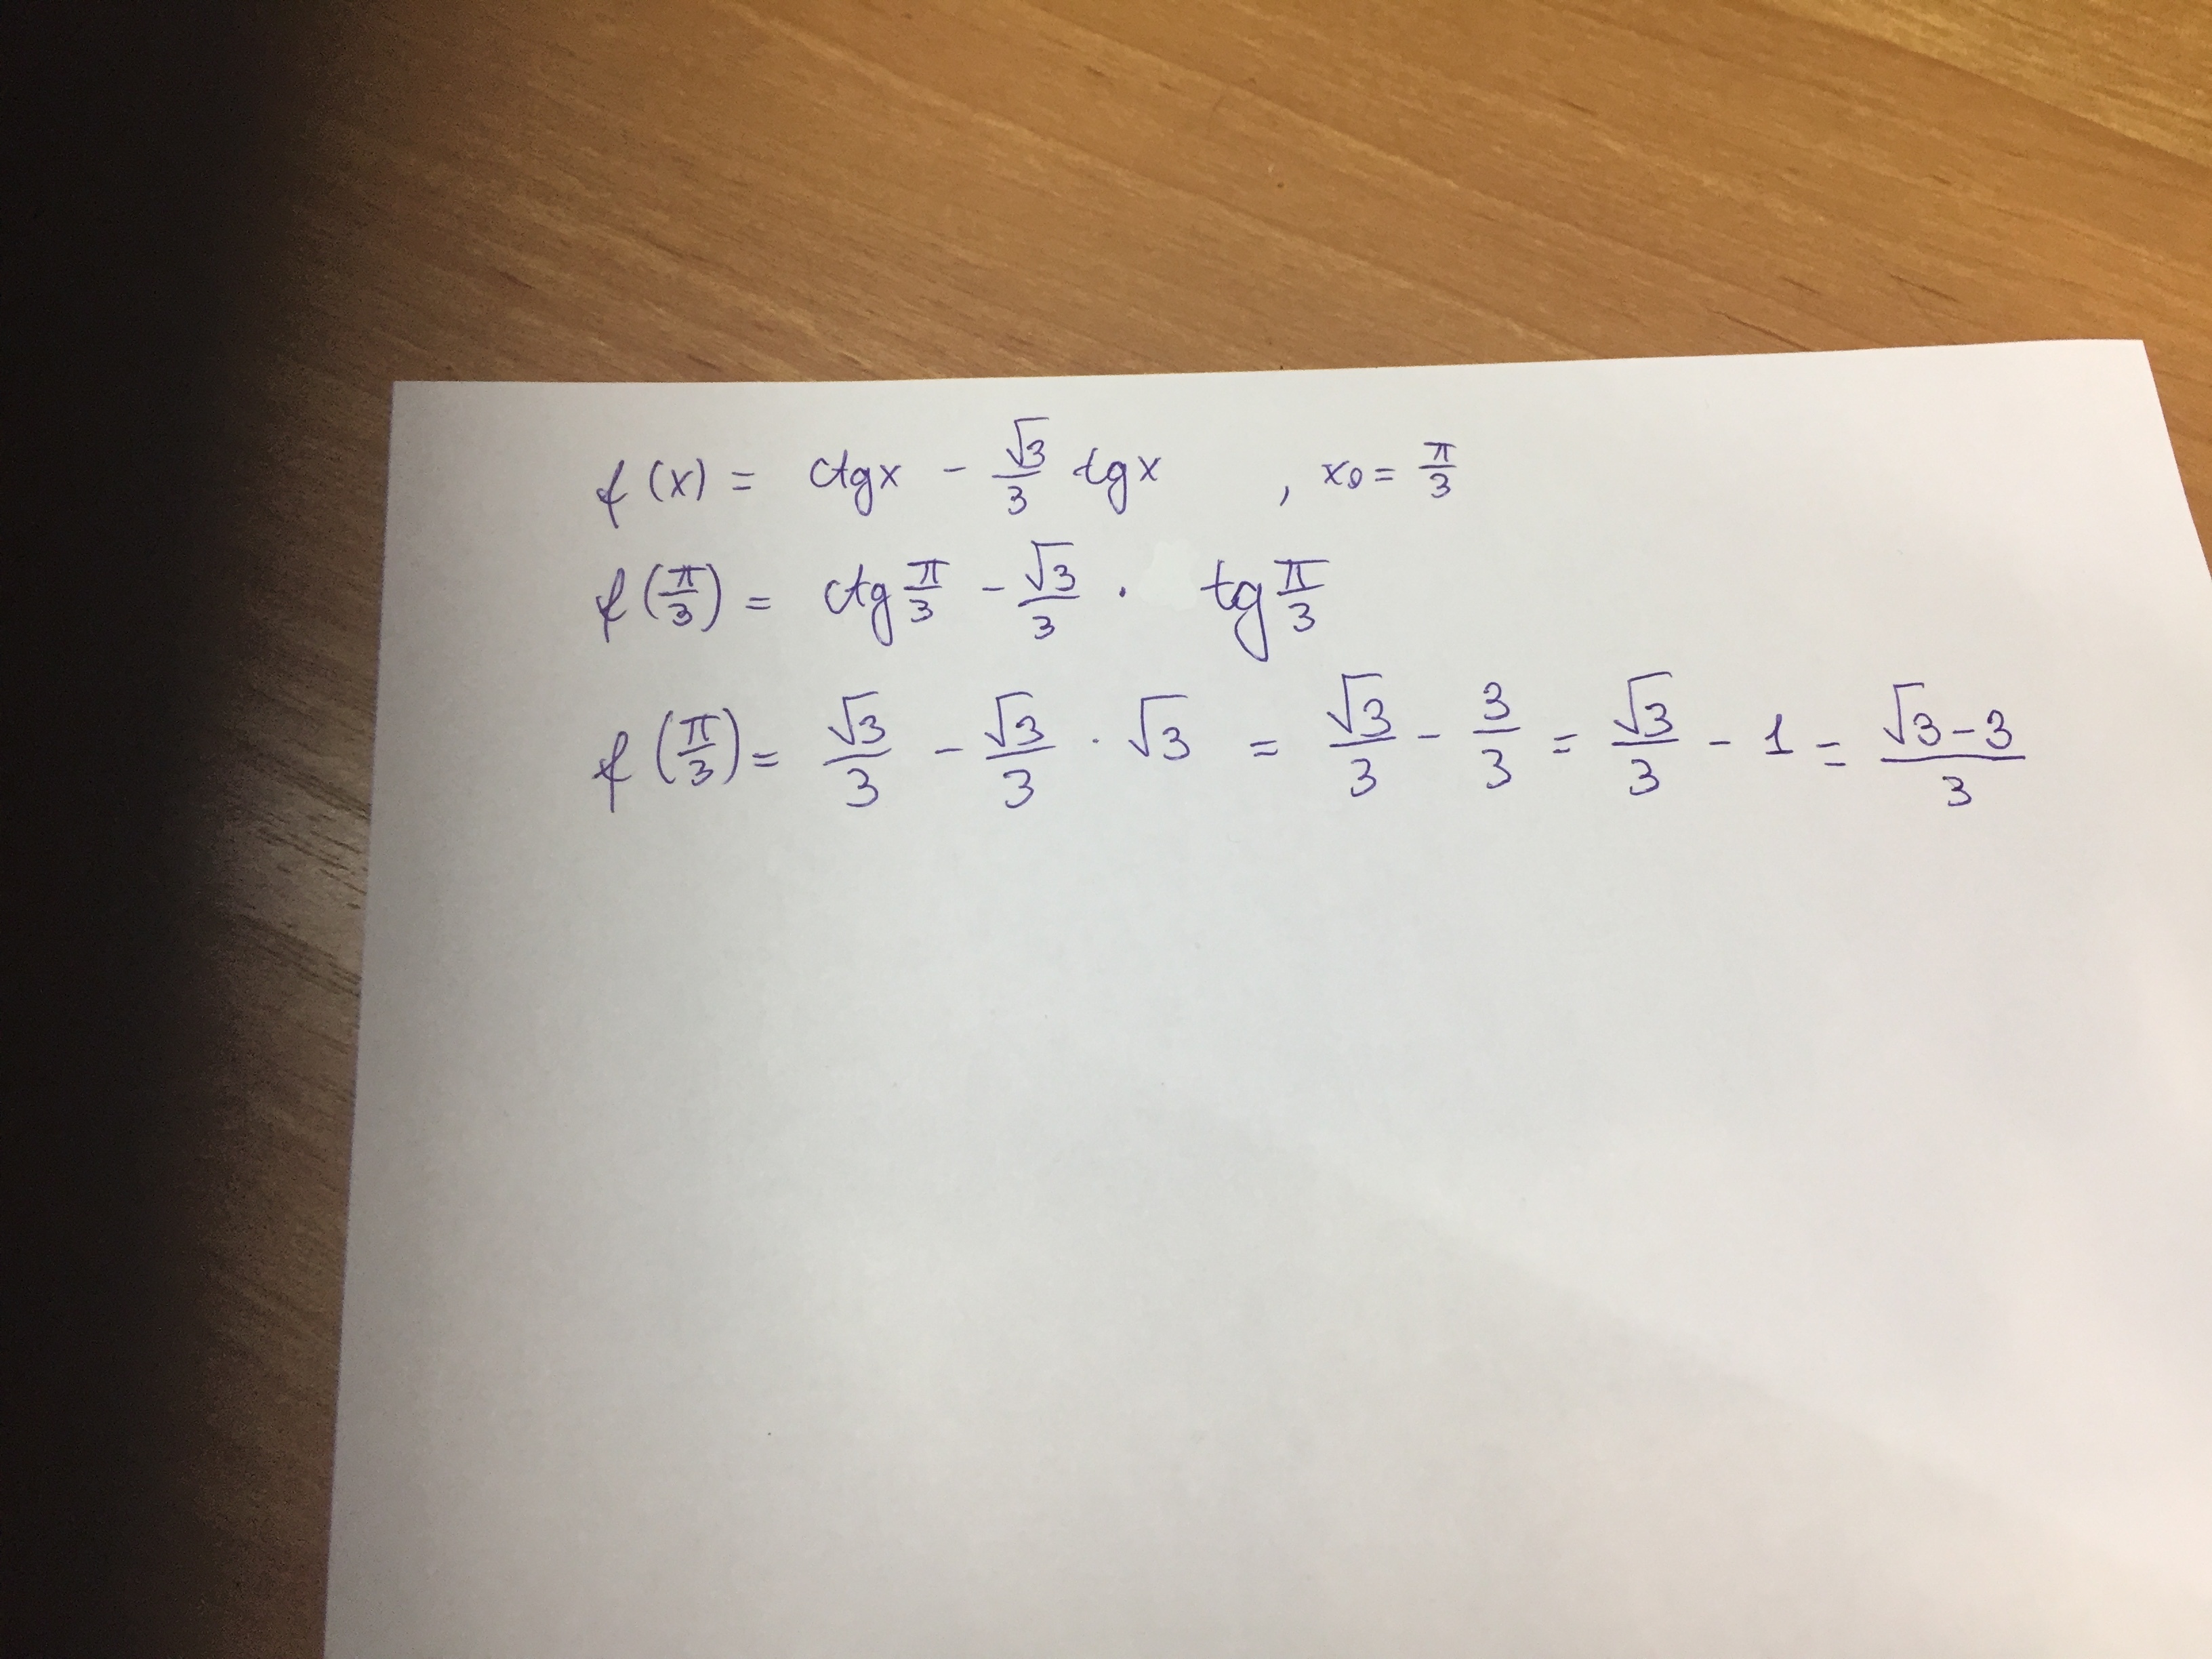 f(x) = ctgx - √3/3 tgx , x0 = π/3
f(π/3) = ctg π/3 - √3/3 · tg π/3
f(π/3) = √3/3 - √3/3 · √3 = √3/3 - 3/3 = √3/3 - 1 = (√3-3)/3